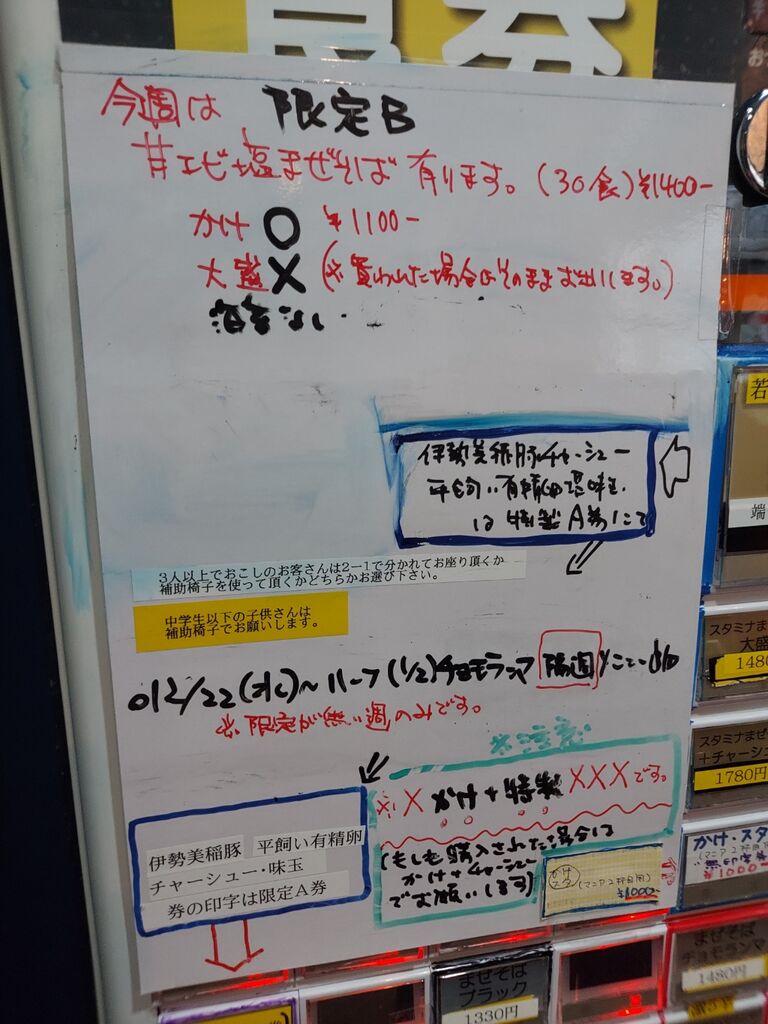 食券
今週は 限定B
#エビ塩まぜそば 有ります。(30食) ¥1400-
かけ ○ ¥1100-
大盛 X (※買われた場合はそのままお出しします。)
海苔なし
伊勢美稲豚チャーシュー
平飼い有精卵塩味玉
は 特製 A券にて
3人以上でおこしのお客さんは2-1で分かれてお座り頂くか
補助椅子を使って頂くかどちらかお選び下さい。
中学生以下の子供さんは
補助椅子でお願いします。
012/22(水)~ 11-7 (1/2)チョモランマ 隔週
※限定が無い週のみです。
※注意
※X かけ+特製 XXXです。
(もしも購入された場合は
かけ+チャーシュー
でお願いします)
かけ
スタ
(マニア2杯目用)
¥1000-
伊勢美稲豚 平飼い有精卵
チャーシュー・味玉
券の印字は限定A券
若
端
スタミナま
大盛
148
スタミナまぜ
+チャーシュ
1780円
かけ・スタ
(マニア2杯目用)
¥1000-
まぜそば
チョモランマ
1480円
まぜそば
ブラック
1330円